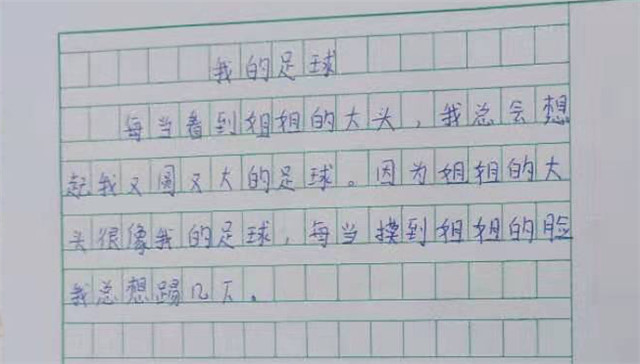 我的足球
每当看到姐姐的大头，我总会想
起我又圆又大的足球。因为姐姐的大
头很像我的足球，每当摸到姐姐的脸
我总想踢几下。